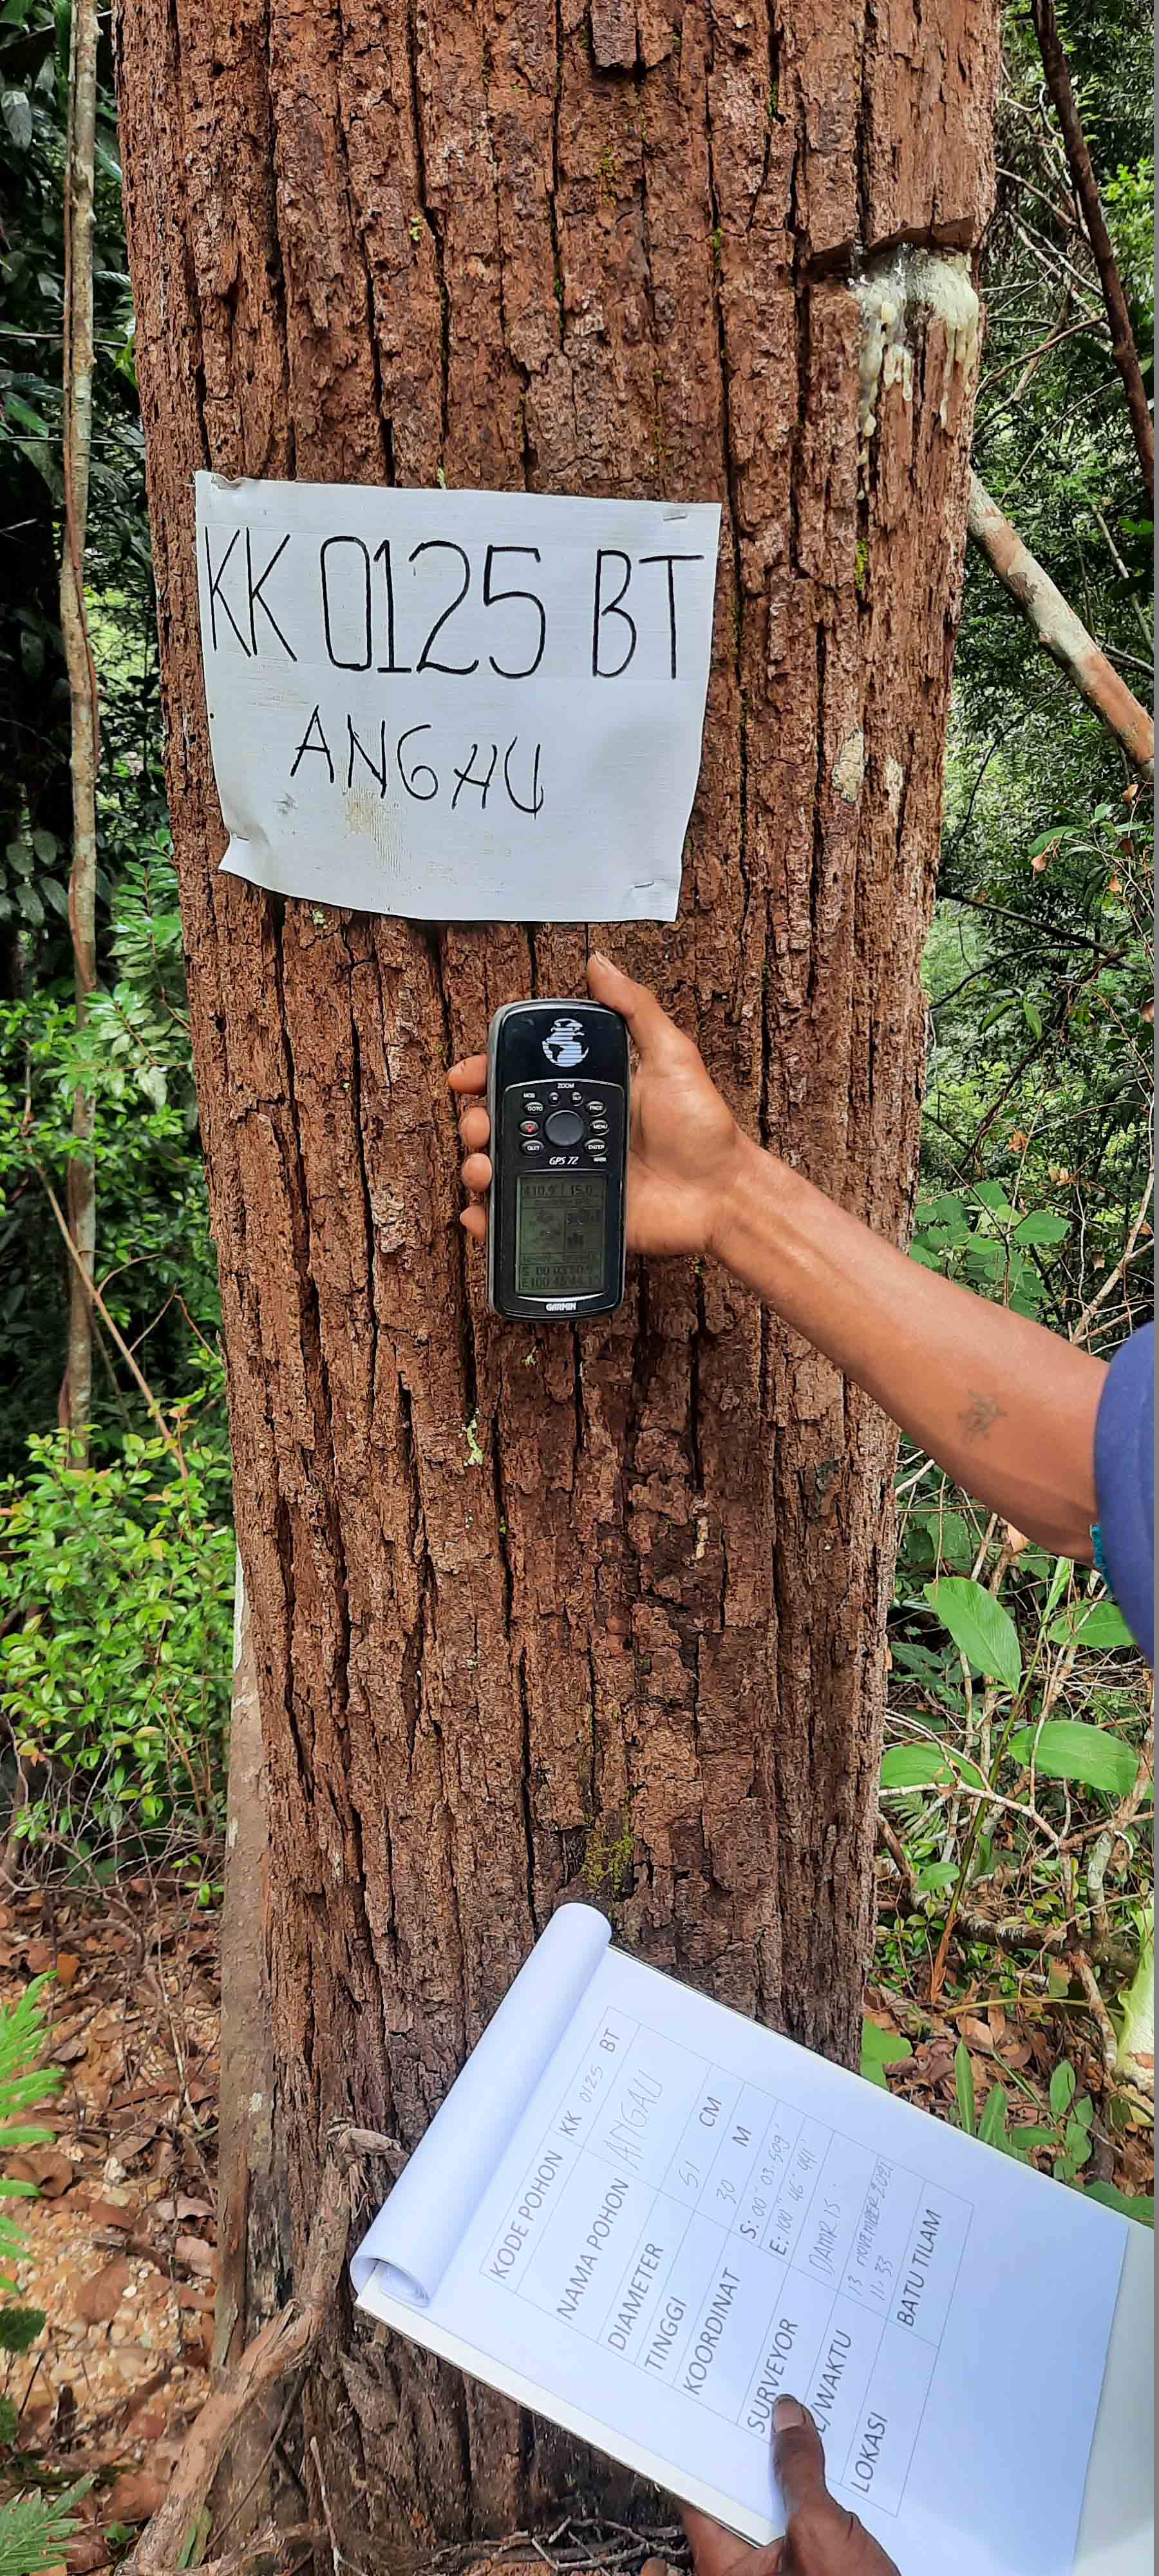 KK 0125 BT
ANGHU
ZOOM
MOB IN OUT
GOTO PAGE
MENU
QUIT ENTER
GPS 72 MARK
15.0
GARMIN
KODE POHON KK 0125 BT
NAMA POHON ANGAU
DIAMETER 51 CM
TINGGI 30 M
KOORDINAT S: 00° 03' 509'
E: 100° 46' 441'
SURVEYOR DAMRIS
L/WAKTU 13 NOVEMBER 2021
11:33
LOKASI BATU TILAM